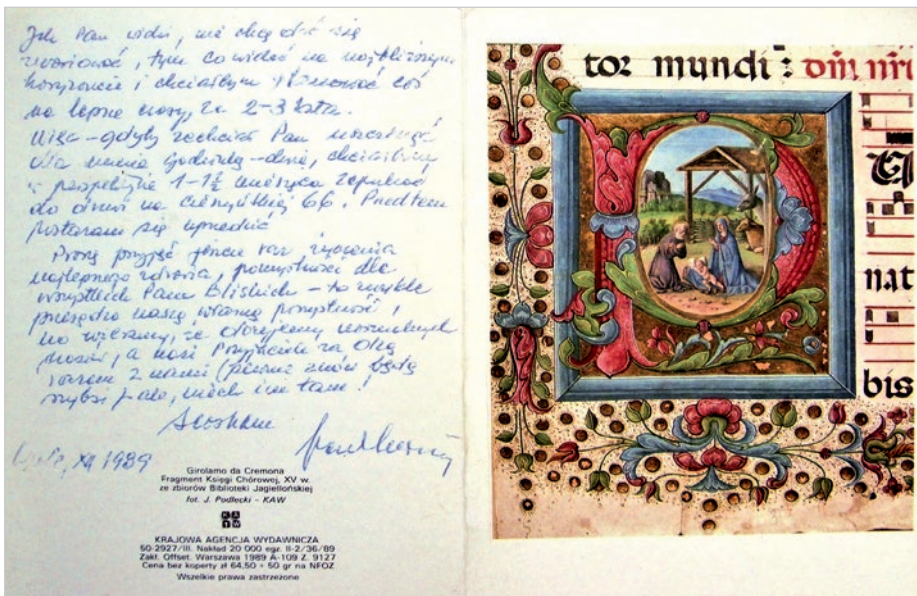 Jak Pan widzi, nie chcę dać się
zwariować, tym co widać na najbliższym
horyzoncie i chciałbym coś
na lepsze czasy, za 2-3 lata.
Więc - gdyby zechciał Pan
dla mnie godzinkę - dwie, chciałbym
w perspektywie 1-1½ miesiąca zapukać
do drzwi na 66. Przedtem
postaram się uprzedzić
Proszę przyjąć jeszcze raz życzenia
najlepszego zdrowia, pomyślności dla
wszystkich Panu Bliskich - to zwykle
naszą własną pomyślność,
no wierzymy, że dożyjemy normalnych
czasów, a nasi Przyjaciele za Olzą
razem z nami (pewnie znów będą
, ale, niech im tam!
XII 1989
Girolamo da Cremona
Fragment Księgi Chórowej, XV w.
ze zbiorów Biblioteki Jagiellońskiej
fot. J. Podlecki - KAW
KRAJOWA AGENCJA WYDAWNICZA
50-2927/III. Nakład 20 000 egz. II-2/36/89
Zakł. Offset. Warszawa 1989 A-109 Z. 9127
Cena bez koperty zł 64,50 + 50 gr na NFOZ
Wszelkie prawa zastrzeżone
tor mundi :
nat
bis